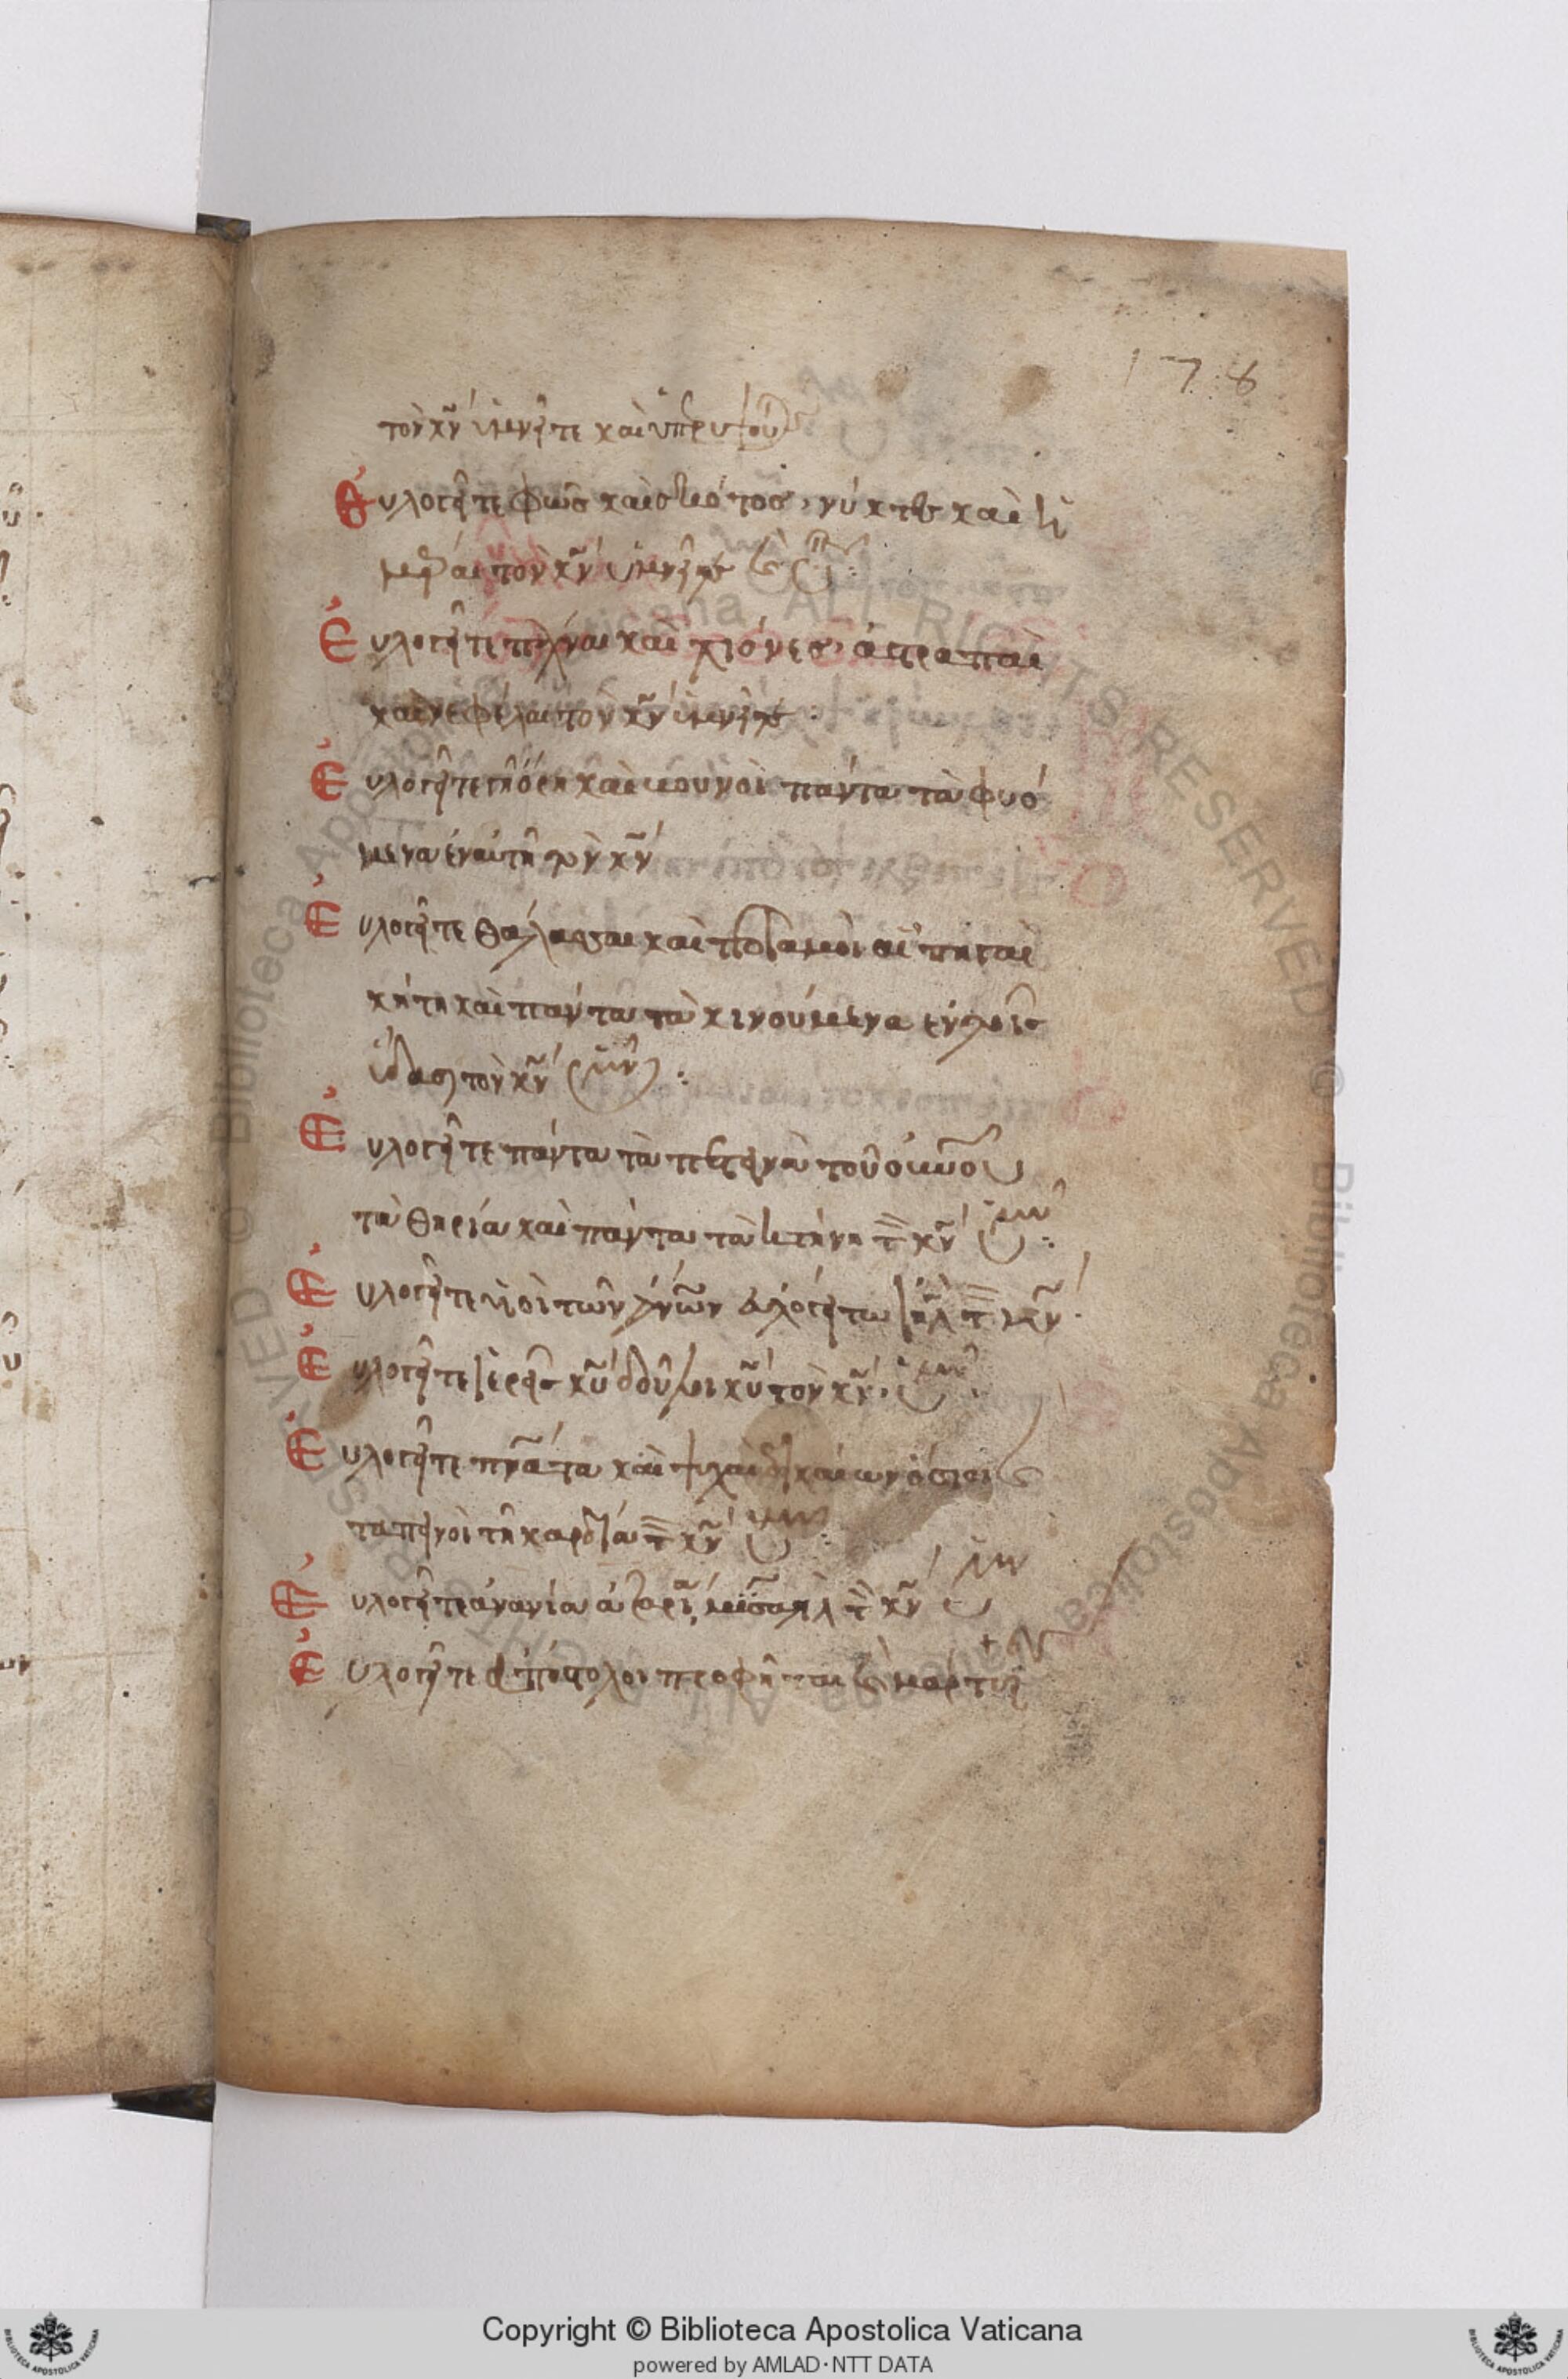 178
τὸν κ̅ν̅ ὑμνεῖτε καὶ ὑπερυψοῦ
Εὐλογεῖτε φῶς καὶ σκότος, νύκτες καὶ ἡ
μέραι τὸν κ̅ν̅ ὑμνεῖτε
Εὐλογεῖτε πάχναι καὶ χιόνες, ἀστραπαὶ
καὶ νεφέλαι τὸν κ̅ν̅ ὑμνεῖτε
Εὐλογεῖτε γῆ ὄρη καὶ βουνοὶ πάντα τὰ φυό
μενα ἐν αὐτῆ τὸν κ̅ν̅
Εὐλογεῖτε θάλασσαι καὶ ποταμοὶ αἱ πηγαὶ
κήτη καὶ πάντα τὰ κινούμενα ἐν τοῖς
ὕδασι τὸν κ̅ν̅ ὑμν
Εὐλογεῖτε πάντα τὰ πετεινὰ τοῦ οὐ̅νοῦ
τὰ θηρία καὶ πάντα τὰ κτήνη τ κ̅ν̅ ὑμν
Εὐλογεῖτε υἱοὶ τῶν ἀ̅νων εὐλογείτω ἰη̅λ τ κ̅ν̅
Εὐλογεῖτε ἱερεῖς κ̅υ̅ δοῦλοι κ̅υ̅ τὸν κ̅ν̅ ὑμν
Εὐλογεῖτε πν̅ατα καὶ ψυχαὶ δικαίων ὅσιοι
ταπεινοὶ τῆ καρδία τ κ̅ν̅ ὑμν
Εὐλογεῖτε ἀνανία ἀζαρία μισαὴλ τ κ̅ν̅ ὑμν
Εὐλογεῖτε ἀπόστολοι προφῆται καὶ μάρτυρ
Copyright © Biblioteca Apostolica Vaticana
powered by AMLAD·NTT DATA